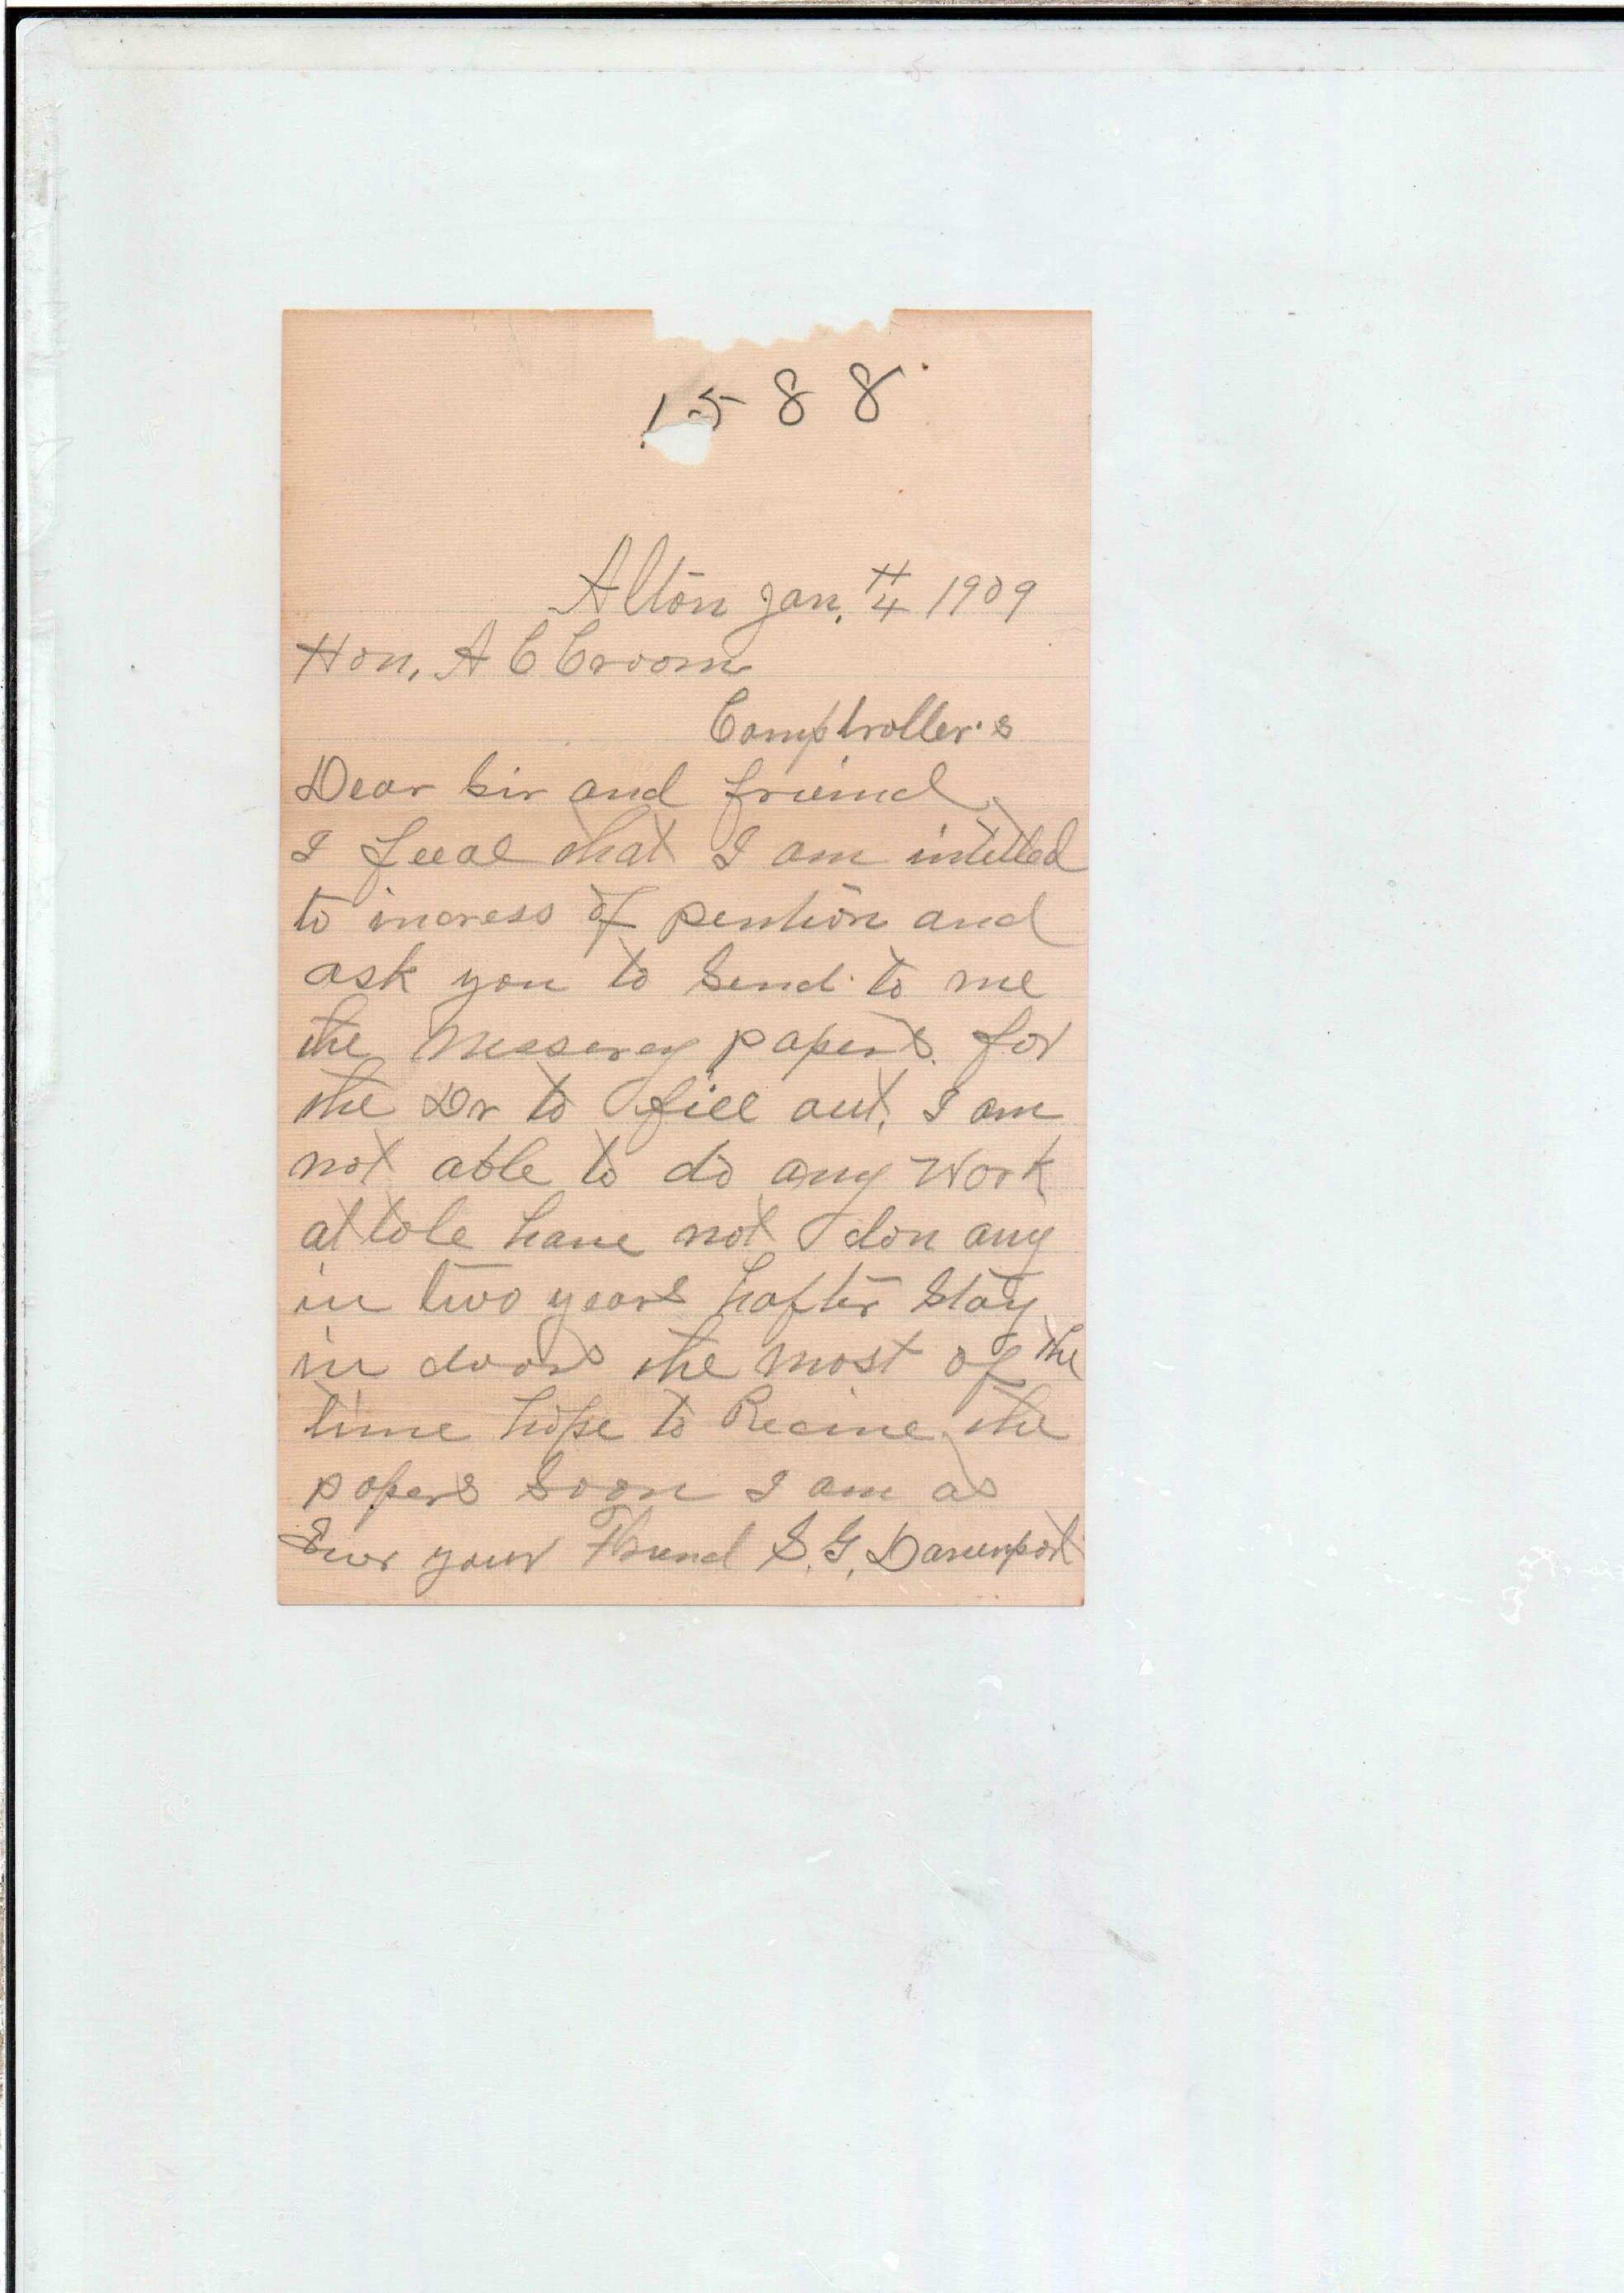 1588
Alton Jan. 4th 1909
Hon, A C Croom
Comptroller's
Dear Sir and friend
I feeal that I am intitled
to incress of pention and
ask you to Send to me
the Nessery papers for
the Dr to fill out, I am
not able to do any Work
at tole have not don any
in two years hafter Stay
in doors the most of the
time hope to Recive the
papers Soon I am as
Ever your Friend S. G. Davenport